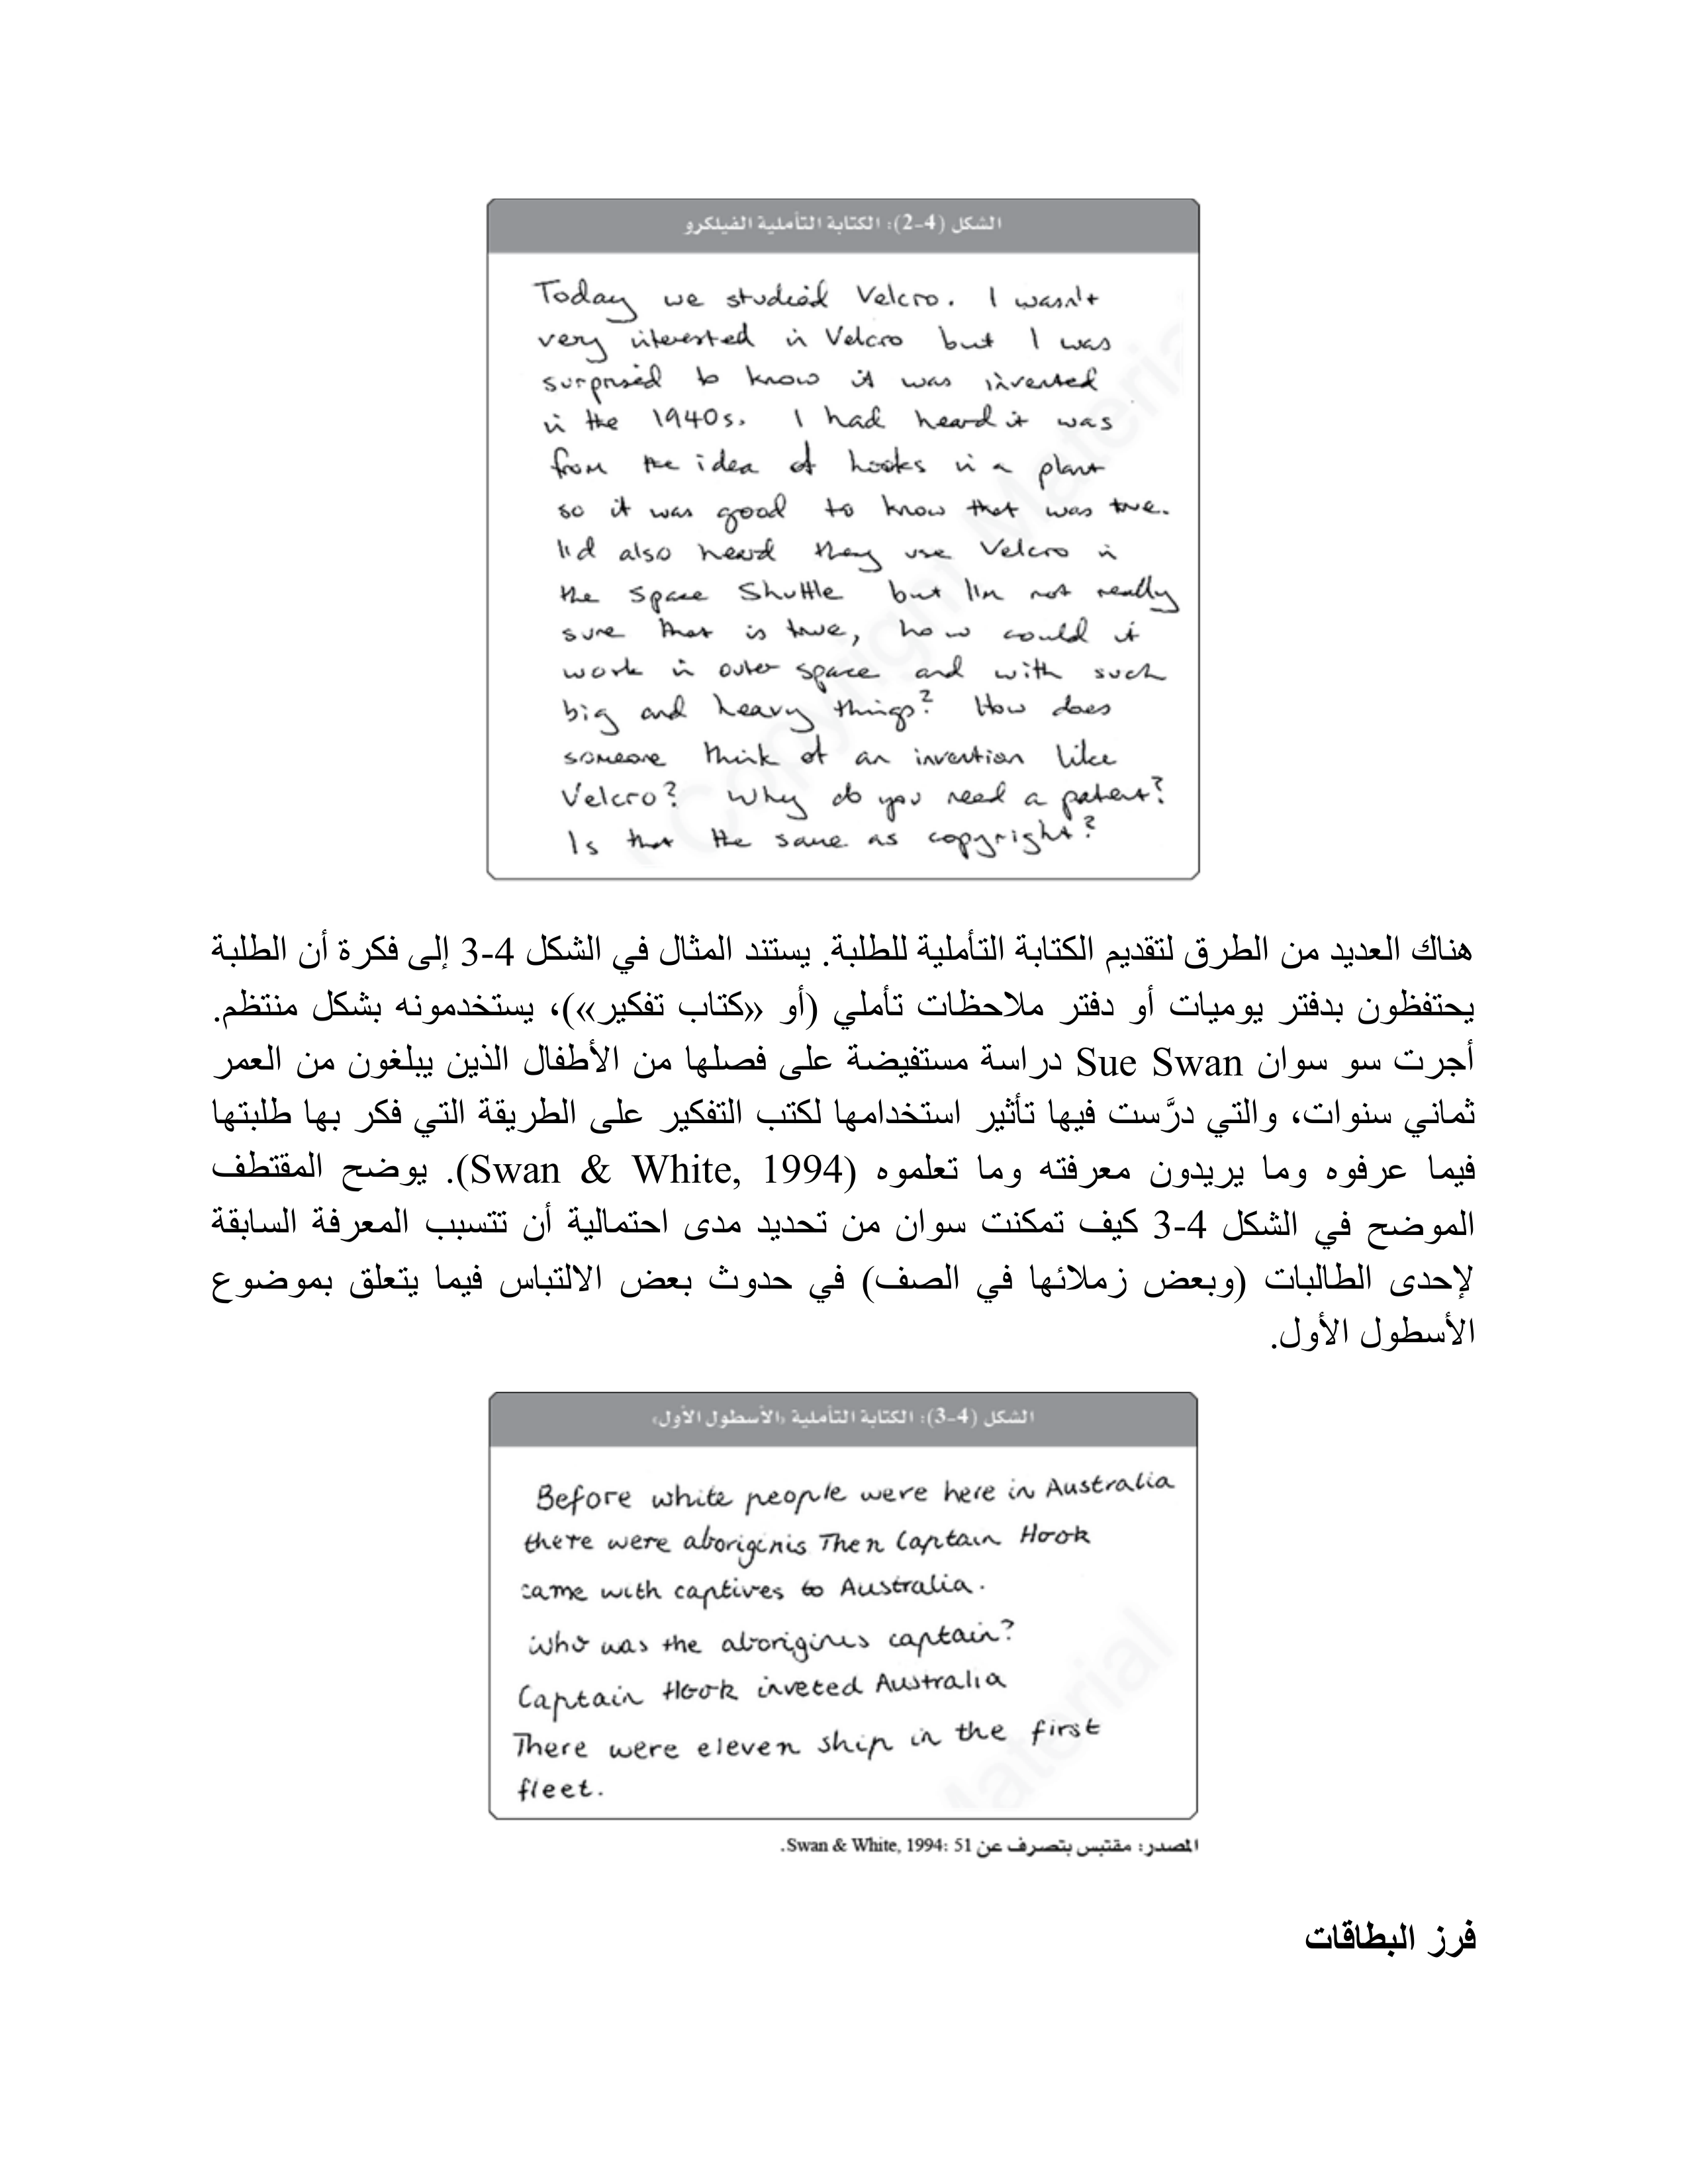 الشكل (4-2): الكتابة التأملية الفيلكرو
Today we studied Velcro. I wasn't
very interested in Velcro but I was
surprised to know it was invented
in the 1940s. I had heard it was
from the idea of hooks in a plant
so it was good to know that was true.
I'd also heard they use Velcro in
the Space Shuttle but I'm not really
sure that is true, how could it
work in outer space and with such
big and heavy things? How does
someone think of an invention like
Velcro? Why do you need a patent?
Is that the same as copyright?
Copyright Material
هناك العديد من الطرق لتقديم الكتابة التأملية للطلبة. يستند المثال في الشكل 4-3 إلى فكرة أن الطلبة
يحتفظون بدفتر يوميات أو دفتر ملاحظات تأملي (أو «كتاب تفكير»)، يستخدمونه بشكل منتظم.
أجرت سو سوان Sue Swan دراسة مستفيضة على فصلها من الأطفال الذين يبلغون من العمر
ثماني سنوات، والتي درَّست فيها تأثير استخدامها لكتب التفكير على الطريقة التي فكر بها طلبتها
فيما عرفوه وما يريدون معرفته وما تعلموه (Swan & White, 1994). يوضح المقتطف
الموضح في الشكل 4-3 كيف تمكنت سوان من تحديد مدى احتمالية أن تتسبب المعرفة السابقة
لإحدى الطالبات (وبعض زملائها في الصف) في حدوث بعض الالتباس فيما يتعلق بموضوع
الأسطول الأول.
الشكل (4-3): الكتابة التأملية «الأسطول الأول»
Before white people were here in Australia
there were aboriginis Then Captain Hook
came with captives to Australia.
Who was the aborigines captain?
Captain Hook inveted Australia
There were eleven ship in the first
fleet.
Material
المصدر: مقتبس بتصرف عن Swan & White, 1994: 51.
فرز البطاقات